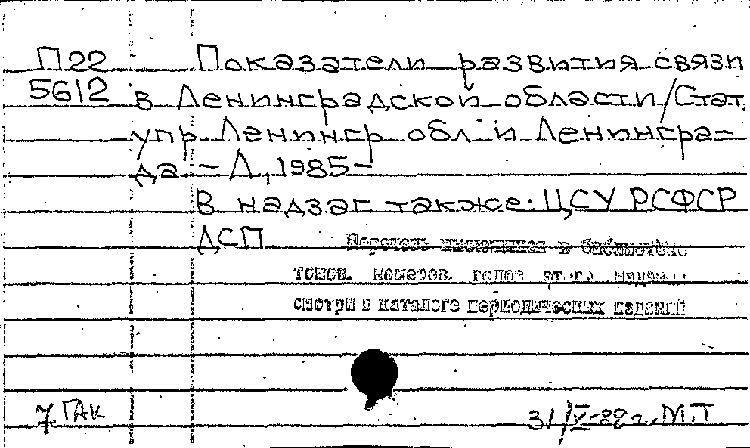 П22 Показатели развития связи
5612 в Ленинградской области/Стат.
упр. Ленингр. обл. и Ленингра-
да. – Л., 1985–
В надзаг. также: ЦСУ РСФСР
ДСП Перечень имеющихся в библиотеке
томов, номеров, годов этого издания
смотри в каталоге периодических изданий
7 ГАК 31/V-88 г. М.Т